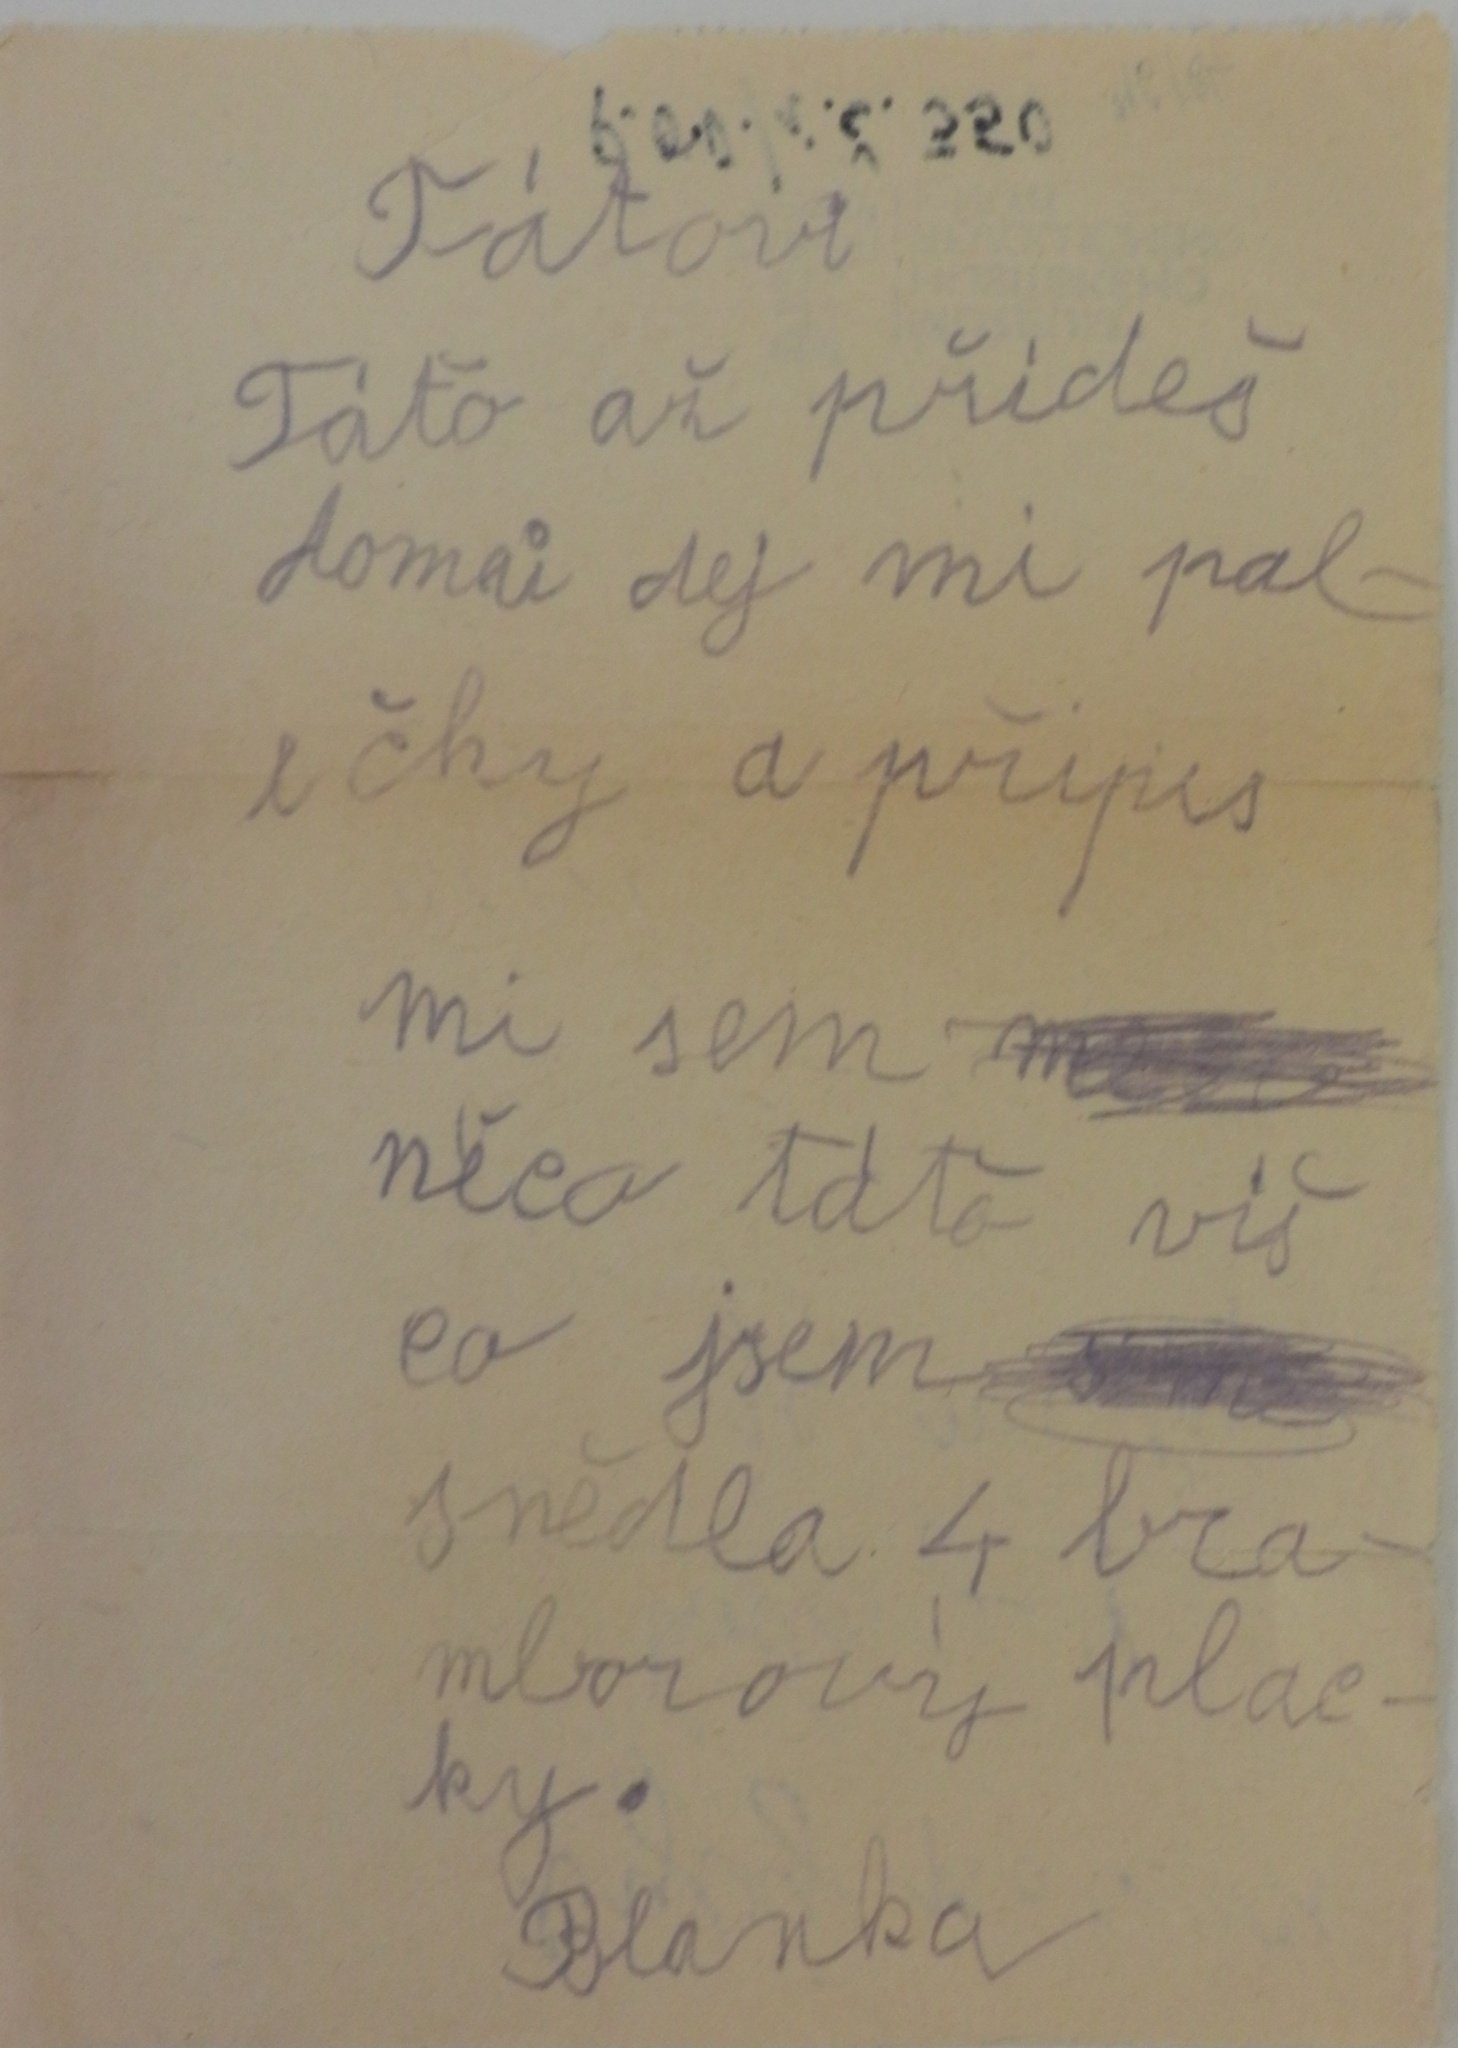 Tátovi
Táťo až přídeš
domů dej mi pal-
ečky a připis
mi sem
něco táťo víš
co jsem
snědla 4 bra-
mborový plac-
ky.
Blanka